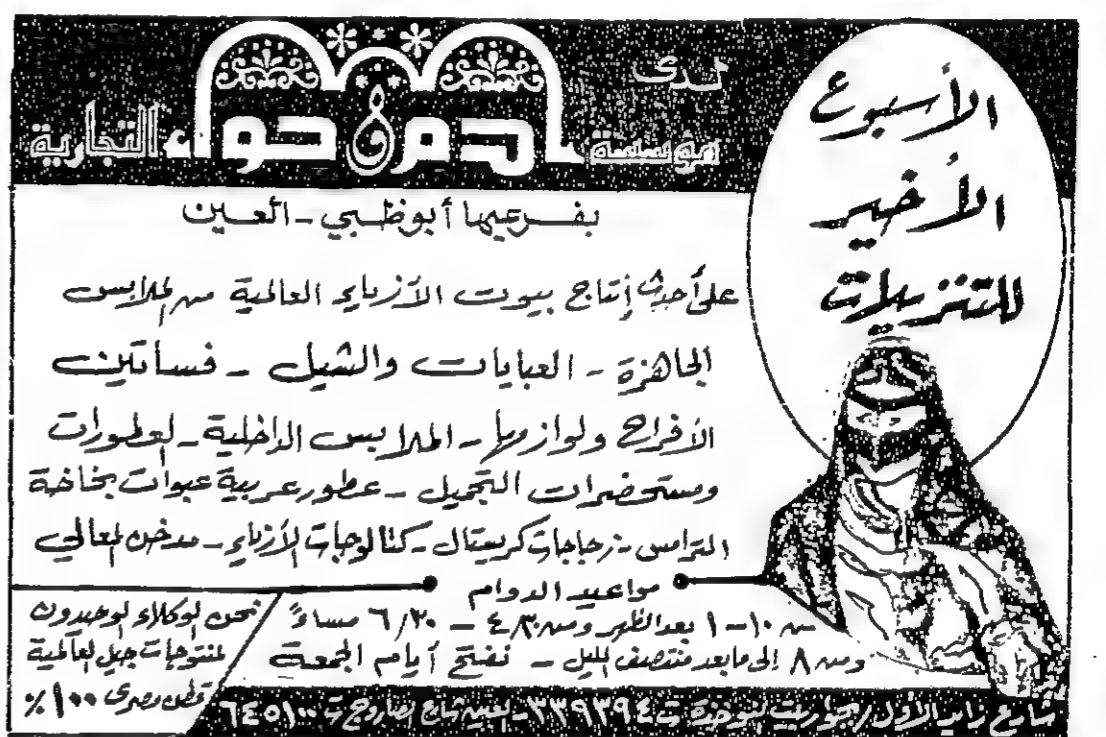 الأسبوع
الأخير
للتنزيلات
لدى
مؤسسة آدم و حواء التجارية
بفرعيها أبوظبي - العين
على أحدث إنتاج بيوت الأزياء العالمية من الملابس
الجاهزة - العبايات والشيل - فساتين
الأفراح ولوازمها - الملابس الداخلية - العطورات
ومستحضرات التجميل - عطور عربية عبوات بخاخة
التراس - زجاجات كريستال - كتالوجات الأزياء - مدخن المعالي
مواعيد الدوام
من ١٠ - ١ بعد الظهر ومن ٤/٣٠ - ٦/٣٠ مساءً
ومن ٨ إلى ما بعد منتصف الليل - نفتح أيام الجمعة
نحن الوكلاء الوحيدون
لمنتوجات جيل العالمية
قطن مصري ١٠٠٪
شارع زايد الأول / بجوار بيت النوخذة ت ٣٣٩٣٩٤ - العين شارع الصاروج ت ٦٤٥١٠٠